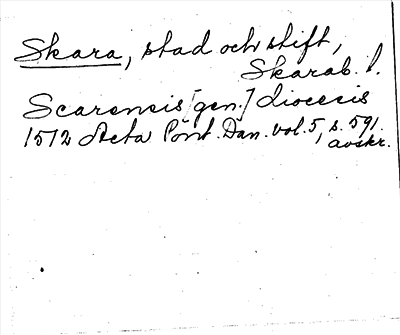 Skara, stad och stift,
Skarab. l.
Scarensis [gen.] diocesis
1512 Acta Pont. Dan. vol. 5, s. 591.
avskr.